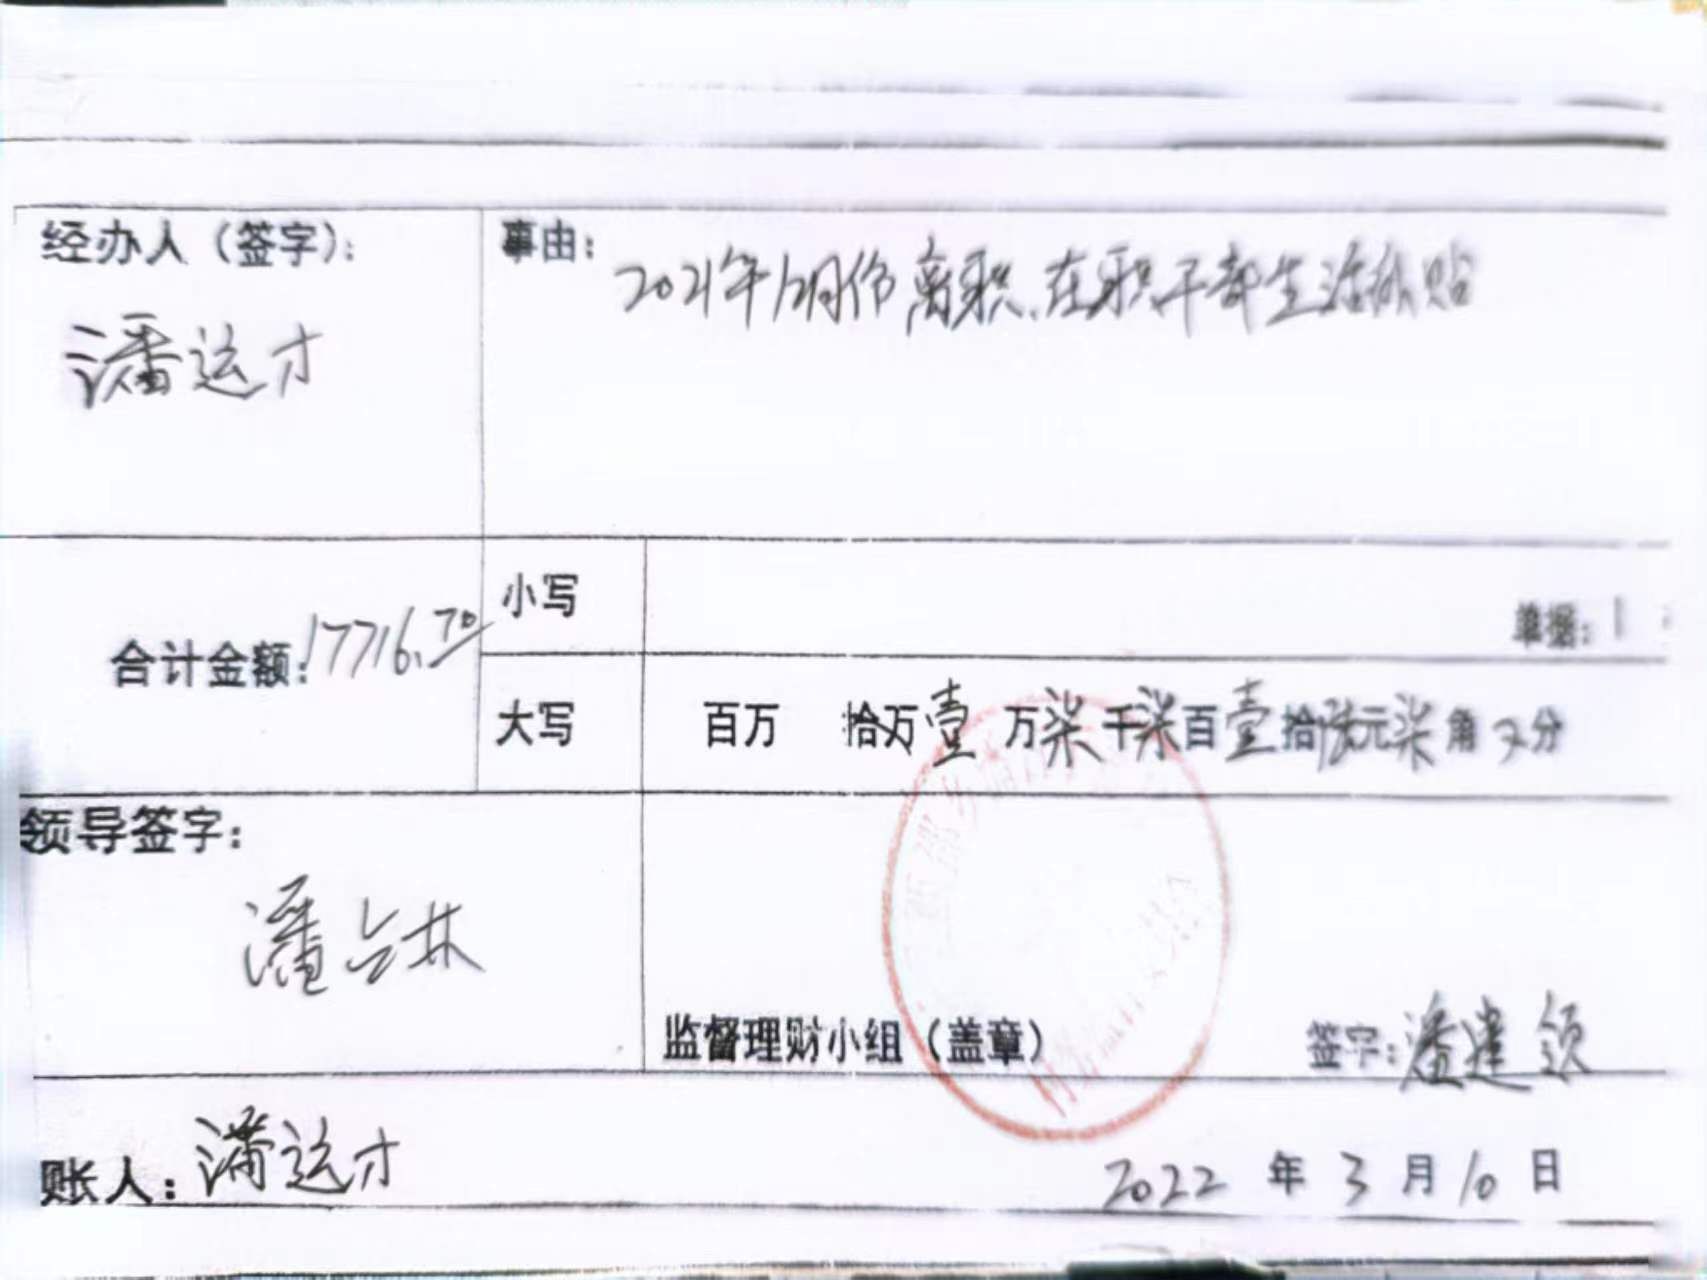 经办人（签字）：
潘运才
事由：
2021年12月份离职、在职干部生活补贴
合计金额：17716.70
小写
单据：1
大写
百万 拾万壹万柒千柒百壹拾陆元柒角 分
领导签字：
潘
监督理财小组（盖章）
签字：潘建领
账人：潘运才
2022年3月10日